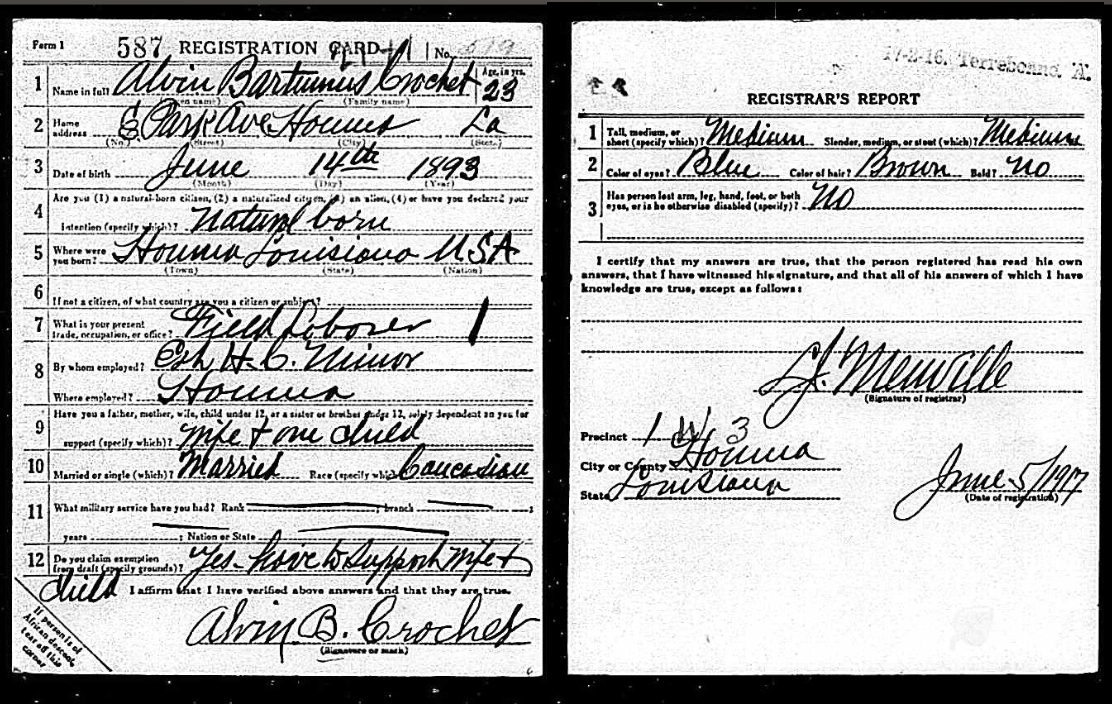 Form 1 587 REGISTRATION CARD No.
1 Name in full Alvin Bartumus Crochet Age, in yrs. 23
(Given name) (Family name)
2 Home address E Park Ave Houma La
(No.) (Street) (City) (State)
3 Date of birth June 14th 1893
(Month) (Day) (Year)
4 Are you (1) a natural-born citizen, (2) a naturalized citizen, (3) an alien, (4) or have you declared your
intention (specify which)? Natural born
5 Where were you born? Houma Louisiana USA
(Town) (State) (Nation)
6 If not a citizen, of what country are you a citizen or subject?
7 What is your present trade, occupation, or office? Field Laborer 1
8 By whom employed? H. C. Minor
Where employed? Houma
9 Have you a father, mother, wife, child under 12, or a sister or brother under 12, solely dependent on you for
support (specify which)? Wife + one child
10 Married or single (which)? Married Race (specify which)? Caucasian
11 What military service have you had? Rank ; branch ;
years ; Nation or State
12 Do you claim exemption from draft (specify grounds)? Yes - have to support wife +
child I affirm that I have verified above answers and that they are true.
Alvin B. Crochet
(Signature or mark)
If person is of
African descent,
tear off this
corner
17-2-16. Terrebonne A.
REGISTRAR'S REPORT
1 Tall, medium, or short (specify which)? Medium Slender, medium, or stout (which)? Medium
2 Color of eyes? Blue Color of hair? Brown Bald? No
3 Has person lost arm, leg, hand, foot, or both eyes, or is he otherwise disabled (specify)? No
I certify that my answers are true, that the person registered has read his own
answers, that I have witnessed his signature, and that all of his answers of which I have
knowledge are true, except as follows:
Menville
(Signature of registrar)
Precinct 1 W 3
City or County Houma
State Louisiana
June 5/1917
(Date of registration)